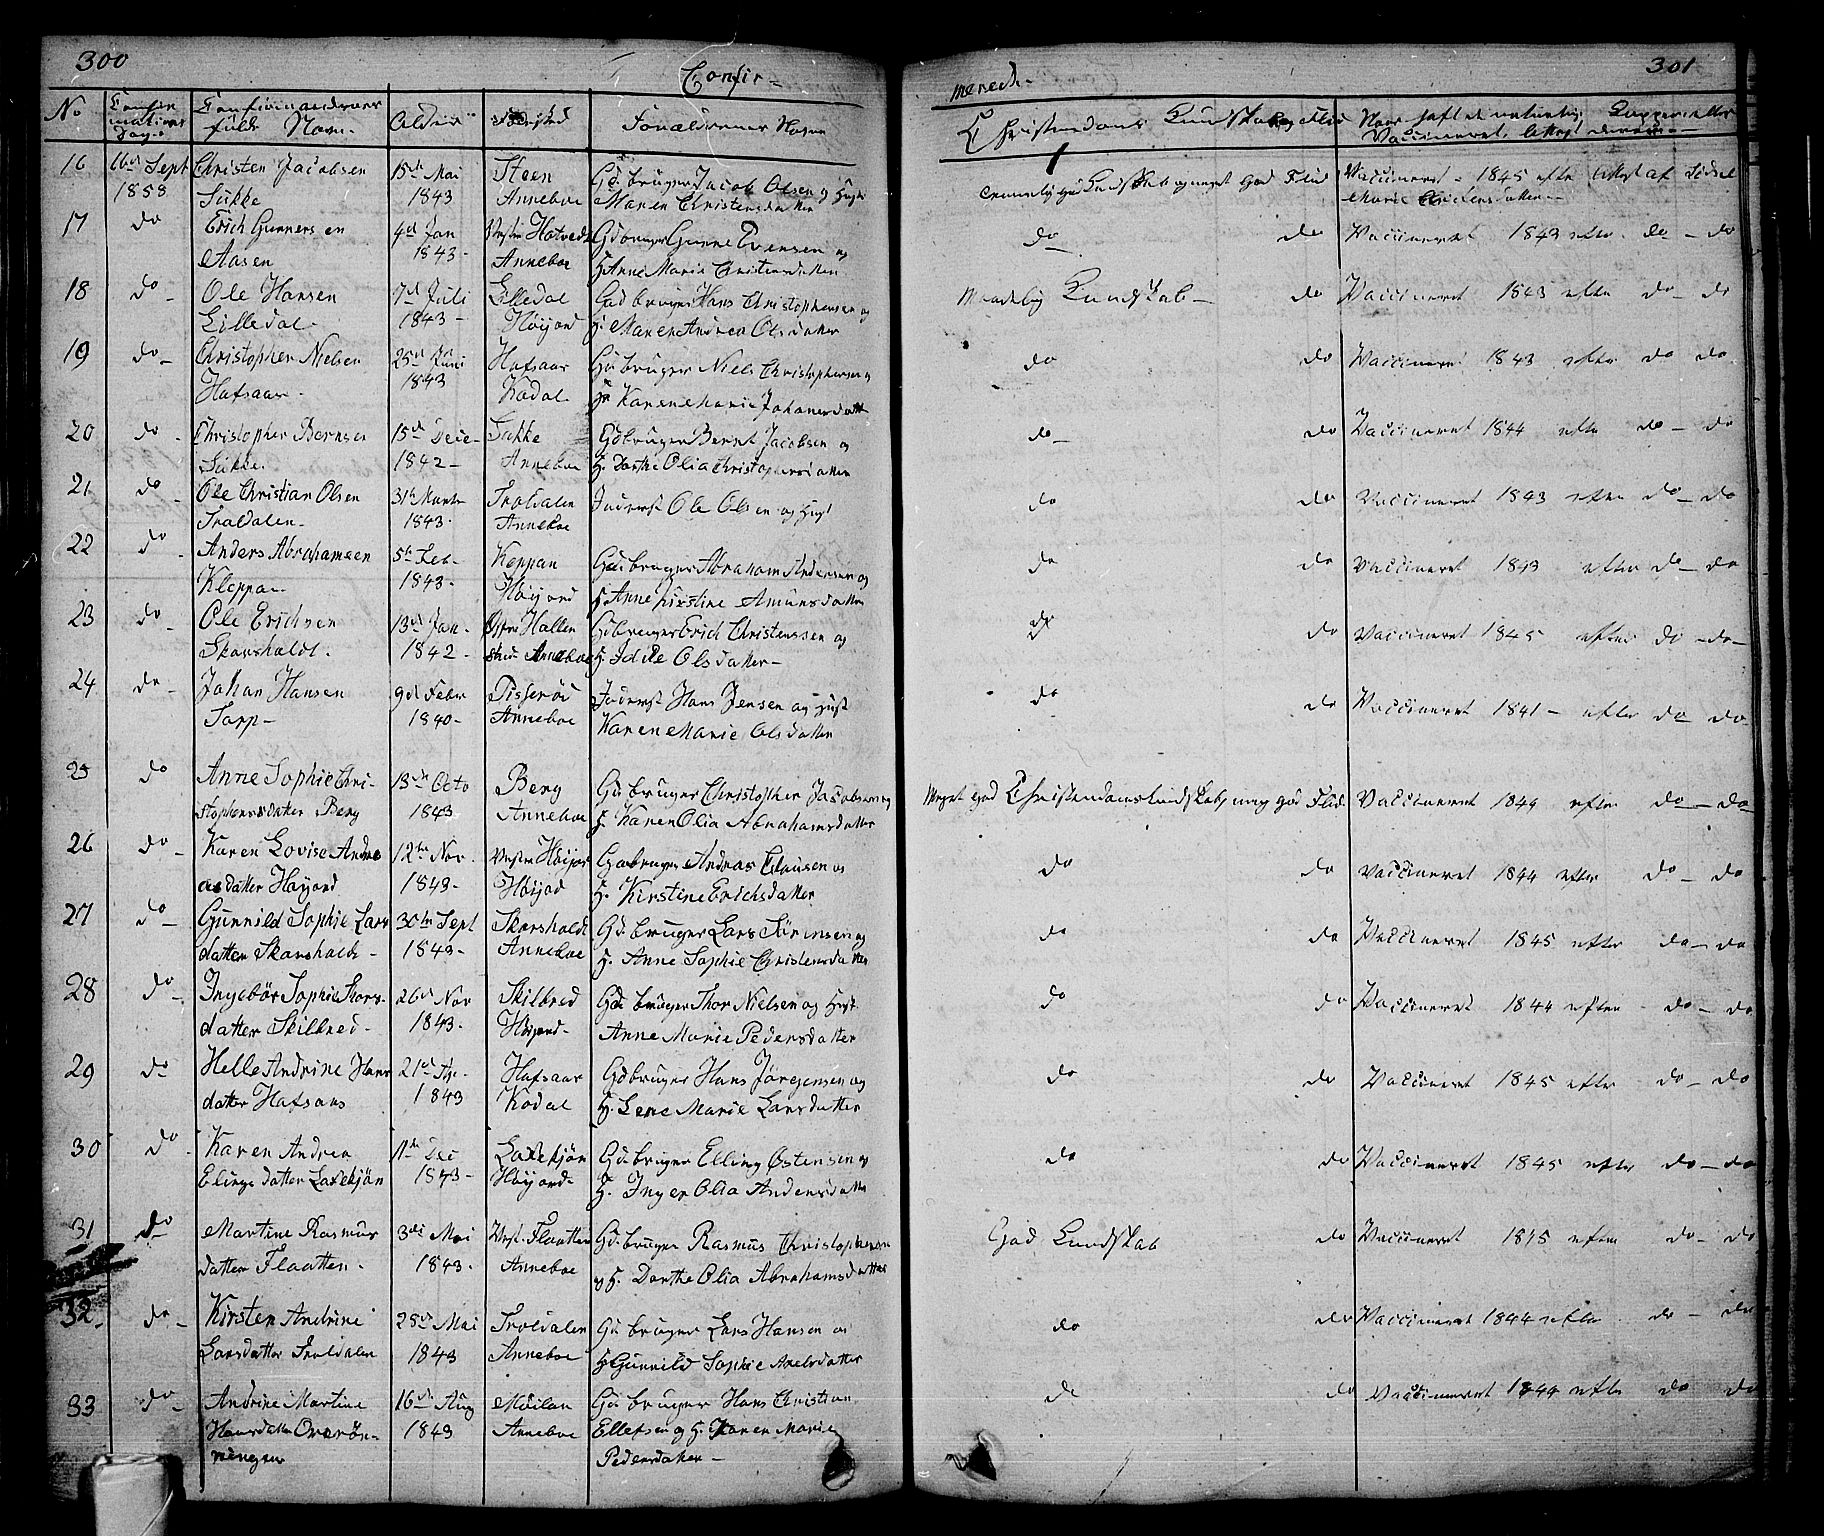 300
Confir-
No Confirmations Dag Confirmandernes fulde Navn. Alder Fødested Forældrenes Navn
16 16d Sept Christen Jacobsen 15d Mai Steen Gdbruger Jacob Olsen og Hust
1858 Sukke 1843 Anneboe Maren Christensdatter
17 do Erich Gunnersen 4d Jan Vestre Hotvedt Gdbruger Gunne Evensen og
Aasen 1843- Anneboe H. Anne Marie Christensdatter
18 do- Ole Hansen 7d Juli Lilledal Gdbruger Hans Christophersen og
Lilledal- 1843- Høijord H. Maren Andrea Olsdatter
19 do- Christopher Nielsen 25d Juni Hafsaas Gdbruger Niels Christophersen og
Hafsaas- 1843 Kodal H. Karen Marie Johanesdatt
20 do- Christopher Bernsen 15d Dece- Sukke Gdbruger Bernt Jacobsen og
Sukke. 1842- Anneboe H. Dorthe Olia Christophersdatter
21 do- Ole Christian Olsen 31te Marts Troldalen Inderst Ole Olsen og Hust
Troldalen- 1843- Anneboe
22 do- Anders Abrahamsen 5te Feb- Keppan Gdbruger Abraham Andersen og
Kleppan- 1843- Høijord H. Anne Kirstine Amunsdatter
23 do- Ole Erichsen 13d Jan- Østre Hallen Gdbruger Erich Christenssen og
Skorsholdt. 1842- Anneboe H. Idde Olsdatter-
24 do- Johan Hansen 9d Febr Tisserød Inderst Hans Jensen og Hust
Torp- 1840- Anneboe Karen Marie Olsdatter
25 do Anne Sophie Chri- 13de Octo Berg Gdbruger Christopher Jacobsen og
stophersdatter Berg 1843 Anneboe H. Karen Olia Abrahamsdatter
26 do- Karen Lovise Andre 12te Nov. Vestre Høijor Gdbruger Andreas Clausen og
asdatter Høijord 1843- Høijod H. Kirstine Erichsdatter
27 do- Gunnild Sophie Lars 30te Sept Skorsholdt Gdbruger Lars Sørensen og
datter Skorsholdt- 1843- Anneboe H. Anne Sophie Christensdatter
28 do- Ingebør Sophie Thors- 26d Nov Skilbred Gdbruger Thor Nielsen og Hust
datter Skilbred- 1843- Høijord- Anne Marie Pedersdatter
29 do Helle Andrine Hans 21de Hafsaas Gdbruger Hans Jørgensen og
datter Hafsaas 1843 Kodal H. Lene Marie Larsdatter
30 do- Karen Andrea 11te Dec Laxekjøn Gdbruger Elling Østensen og
Elingsdatter Laxekjøn 1843- Høijord- H. Inger Olia Andersdatter
31 do Martine Rasmus 3die Mai Vest. Flaatten Gdbruger Rasmus Christophersen
datter Flaatten- 1843- Anneboe og H. Dorthe Olia Abrahamsdatter
32- do- Kirsten Andrine 28de Mai Troldalen Gdbruger Lars Hansen og
Larsdatter Troldalen 1843 Anneboe H. Gunnild Sophie Axelsdatter
33 do- Andrine Martine 16d Aug Møilan Gdbruger Hans Christian
Hansdatter Overøn- 1843 Anneboe Ellefsen og H. Karen Marie
ningen Pedersdatter-
301
merede-
Christendoms Kundskab og Flid Naar haft de naturlig Kopper eller
Vaccineret, Attest derom-
Temmelig god Kundskab og meget god Flid Vaccineret- 1845 efter Attest af Sidsel
Marie Andersdatter-
do do Vaccineret 1843 efter do- do
Maadelig Kundskab- do Vaccineret 1843 efter do- do
do do Vaccineret 1843 efter do do.
do- do Vaccineret 1844 efter do- do
do do Vaccineret 1843 efter do- do
do do Vaccineret 1843 efter do- do
do do Vaccineret 1845 efter do -do-
do do Vaccineret 1841- efter do do-
Meget god Christendomskundskab og meg god Flid. Vaccineret 1844 efter do- do
do do Vaccineret 1844 efter do- do
do do Vaccineret 1845 efter do- do
do do Vaccineret 1844 efter- do- do
do do Vaccineret 1845 efter do- do
do do Vaccineret 1845 efter do- do
God Kundskab do Vaccineret 1845 efter do- do
do do Vaccineret 1844 efter do- do
do do Vaccineret 1844 efter do do